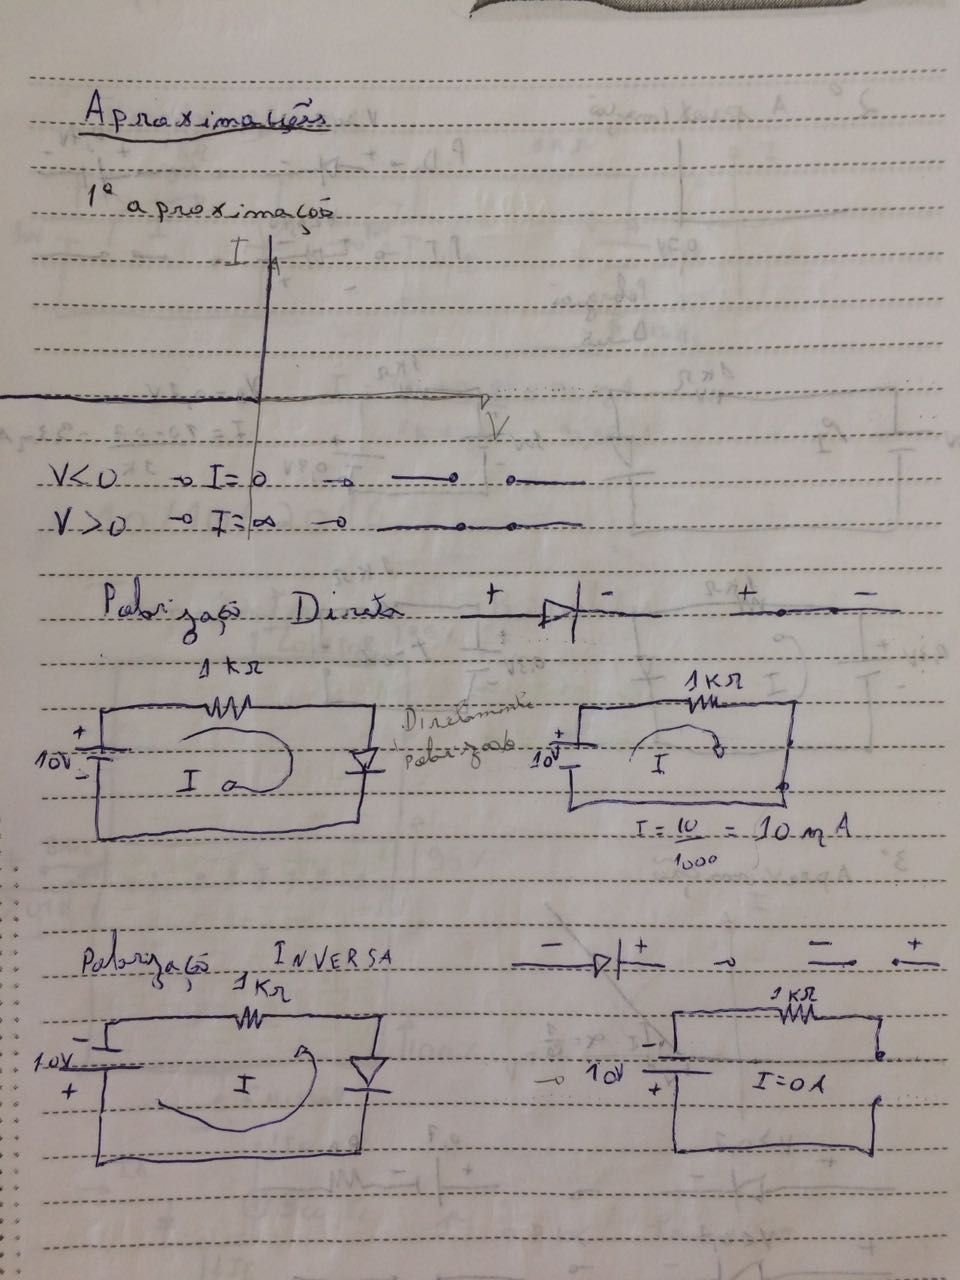 Aproximações
1ª aproximação
I
V
V<0 → I=0 →
V>0 → I=∞ →
Polarização Direta + - + -
1KΩ 1KΩ
+ Diretamente +
10V I polarizado 10V I
-
I = 10/1000 = 10 mA
Polarização INVERSA - + → - +
1KΩ 1KΩ
- -
10V I → 10V I=0A
+ +